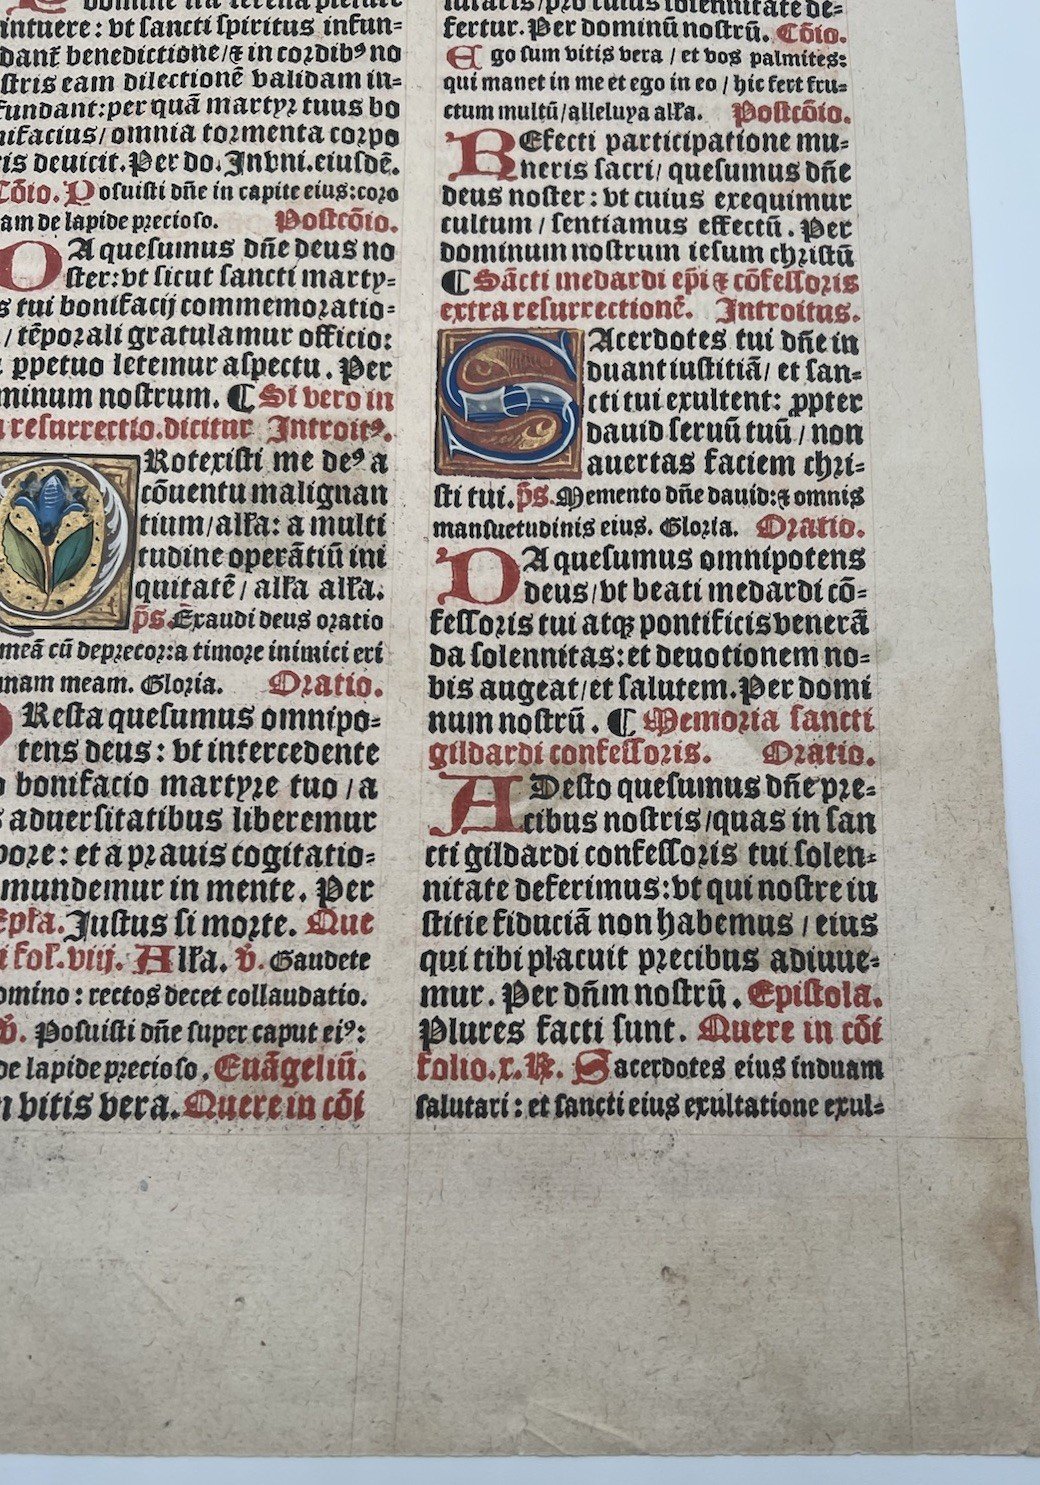 intuere: vt sancti spiritus infun-
dant̄ benedictione/⁊ in cordibꝰ no
stris eam dilectionē validam in-
fundant: per quā martyr tuus bo
nifacius/ omnia tormenta corpo
ris deuicit. Per do. In vni. eiusdē.
Cōio. Posuisti dn̄e in capite eius: coro
am de lapide precioso. Postcōio.
DA quesumus dn̄e deus no
ster: vt sicut sancti marty-
s tui bonifacij commemoratio-
/ tēporali gratulamur officio:
ꝑpetuo letemur aspectu. Per
minum nostrum. ¶ Si vero in
resurrectio. dicitur Introitꝰ.
Rotexisti me deꝰ a
cōuentu malignan
tium/ alľa: a multi
tudine operātiū ini
quitatē/ alľa alľa.
p̄s. Exaudi deus oratio
meā cū deprecor: a timore inimici eri
nam meam. Gloria. Oratio.
PResta quesumus omnipo-
tens deus: vt intercedente
o bonifacio martyre tuo/ a
s aduersitatibus liberemur
pore: et a prauis cogitatio-
mundemur in mente. Per
Epľa. Justus si morte. Que
i fol. viij. Alľa. v̄. Gaudete
omino: rectos decet collaudatio.
v̄. Posuisti dn̄e super caput eiꝰ:
de lapide precioso. Euāgeliū.
n vitis vera. Quere in cōi
fertur. Per dominū nostrū. Cōio.
Ego sum vitis vera/ et vos palmites:
qui manet in me et ego in eo/ hic fert fru-
ctum multū/ alleluya alľa. Postcōio.
REfecti participatione mu-
neris sacri/ quesumus dn̄e
deus noster: vt cuius exequimur
cultum/ sentiamus effectū. Per
dominum nostrum iesum christū
¶ Sācti medardi ep̄i ⁊ cōfessoris
extra resurrectionē. Introitus.
SAcerdotes tui dn̄e in
duant iustitiā/ et san-
cti tui exultent: ꝓpter
dauid seruū tuū/ non
auertas faciem chri-
sti tui. p̄s. Memento dn̄e dauid: ⁊ omnis
mansuetudinis eius. Gloria. Oratio.
DA quesumus omnipotens
deus/ vt beati medardi cō-
fessoris tui atqꝫ pontificis venerā
da solennitas: et deuotionem no-
bis augeat/ et salutem. Per domi
num nostrū. ¶ Memoria sancti
gildardi confessoris. Oratio.
ADesto quesumus dn̄e pre-
cibus nostris/ quas in san
cti gildardi confessoris tui solen-
nitate deferimus: vt qui nostre iu
stitie fiduciā non habemus/ eius
qui tibi placuit precibus adiuue-
mur. Per dn̄m nostrū. Epistola.
Plures facti sunt. Quere in cōi
folio. x. ℞. Sacerdotes eius induam
salutari: et sancti eius exultatione exul-